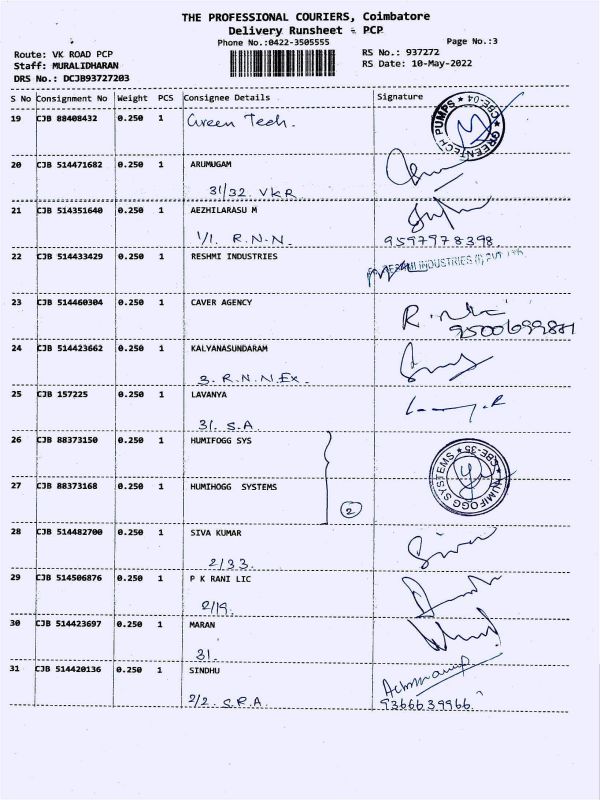 THE PROFESSIONAL COURIERS, Coimbatore
Delivery Runsheet - PCP
Phone No.:0422-3505555 Page No.:3
Route: VK ROAD PCP RS No.: 937272
Staff: MURALIDHARAN RS Date: 10-May-2022
DRS No.: DCJB93727203
S No Consignment No Weight PCS Consignee Details Signature
19 CJB 88408432 0.250 1 Green Tech.
GREENTECH PUMPS * CBE-04 *
20 CJB 514471682 0.250 1 ARUMUGAM
31/32. VKR.
21 CJB 514351640 0.250 1 AEZHILARASU M
1/1. R.N.N. 9597978398
22 CJB 514433429 0.250 1 RESHMI INDUSTRIES
RESHMI INDUSTRIES (I) PVT
23 CJB 514460304 0.250 1 CAVER AGENCY
24 CJB 514423662 0.250 1 KALYANASUNDARAM
3. R.N.N.Ex.
25 CJB 157225 0.250 1 LAVANYA
31. S.A.
26 CJB 88373150 0.250 1 HUMIFOGG SYS
HUMIFOGG SYSTEMS * CBE-35 *
27 CJB 88373168 0.250 1 HUMIHOGG SYSTEMS
2
28 CJB 514482700 0.250 1 SIVA KUMAR Siva
2/33.
29 CJB 514506876 0.250 1 P K RANI LIC
2/19.
30 CJB 514423697 0.250 1 MARAN
31.
31 CJB 514420136 0.250 1 SINDHU
2/2. S.R.A. 9366639966.